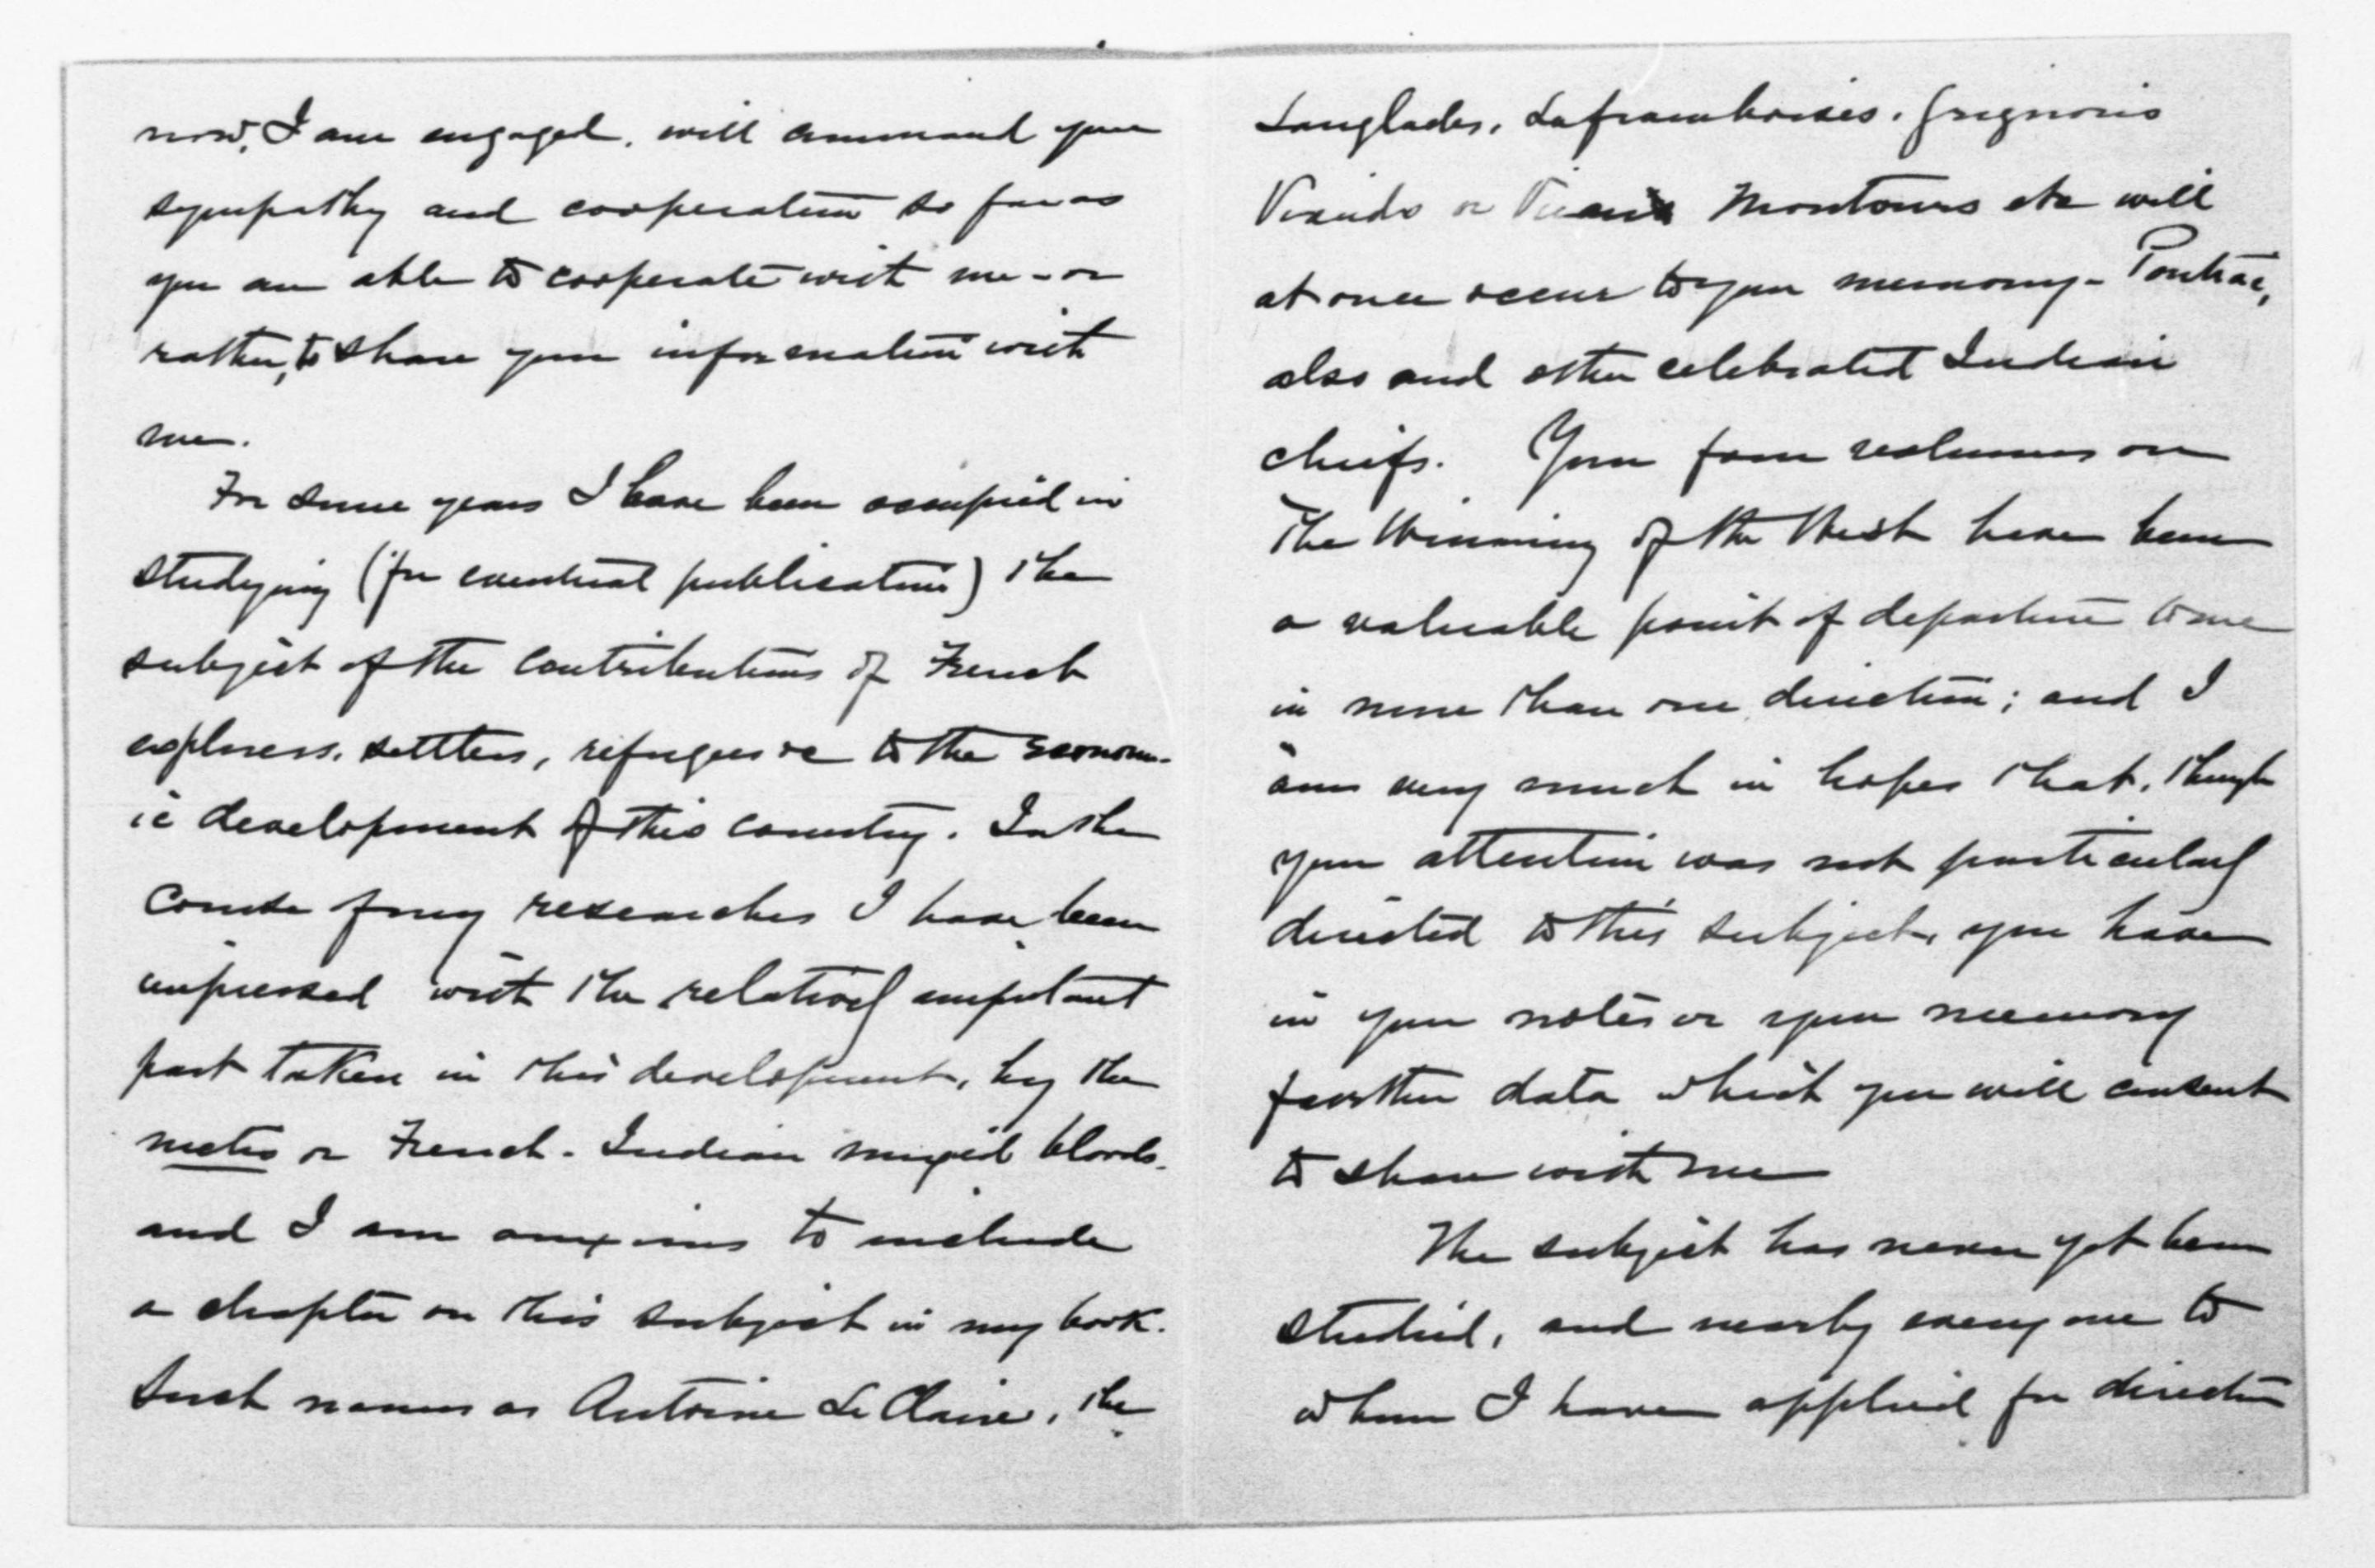 now, I am engaged, will command your
sympathy and cooperation so far as
you are able to cooperate with me - or
rather, to share your information with
me.
For some years I have been occupied in
studying (for eventual publication) the
subject of the contributions of French
explorers, settlers, refugees &c to the econom-
ic development of this country. In the
course of my researches I have been
impressed with the relatively important
part taken in this development, by the
metis or French-Indian mixed bloods.
and I am anxious to include
a chapter on this subject in my book.
Such names as Antoine Le Claire, the
Langlades, Laframboises, Grignons
or Montours etc will
at once occur to your memory - Pontiac,
also and other celebrated Indian
chiefs. Your four volumes on
The Winning of the West have been
a valuable point of departure to me
in more than one direction; and I
am very much in hopes that, though
your attention was not particularly
directed to this subject, you have
in your notes or your memory
further data which you will consent
to share with me
The subject has never yet been
studied, and nearly every one to
whom I have applied for direction